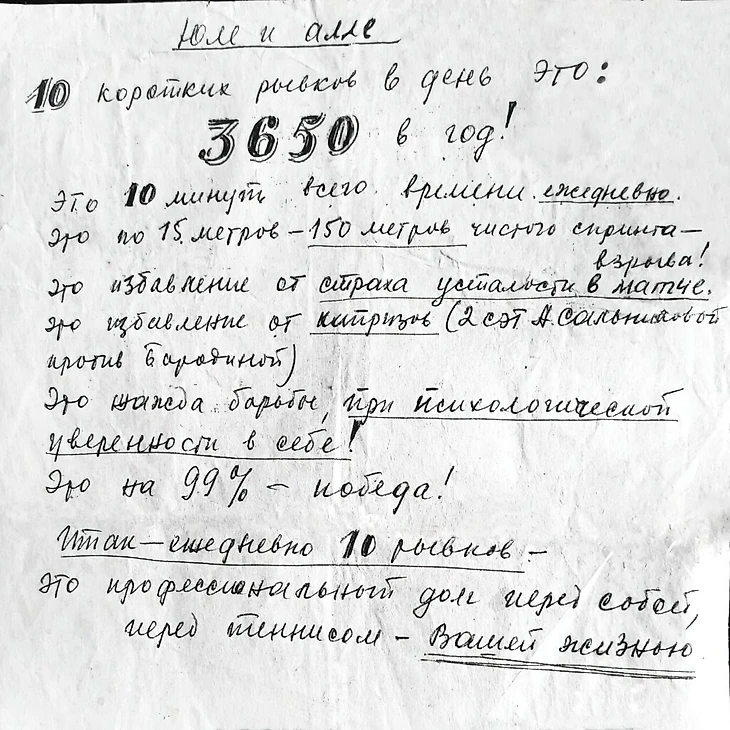 Юле и алле
10 коротких рывков в день это:
3650 в год!
Это 10 минуть всего времени. ежедневно.
Это по 15 метров - 150 метров чистого спринта -
взрыва!
это избавление от страха усталости в матче.
это избавление от капризов (2 сэт А. Сальниковой
против Бородиной)
Это жажда борьбы, при психологической
уверенности в себе!
Это на 99% - победа!
Итак - ежедневно 10 рывков -
это профессиональный долг перед собой,
перед теннисом - Вашей жизнью